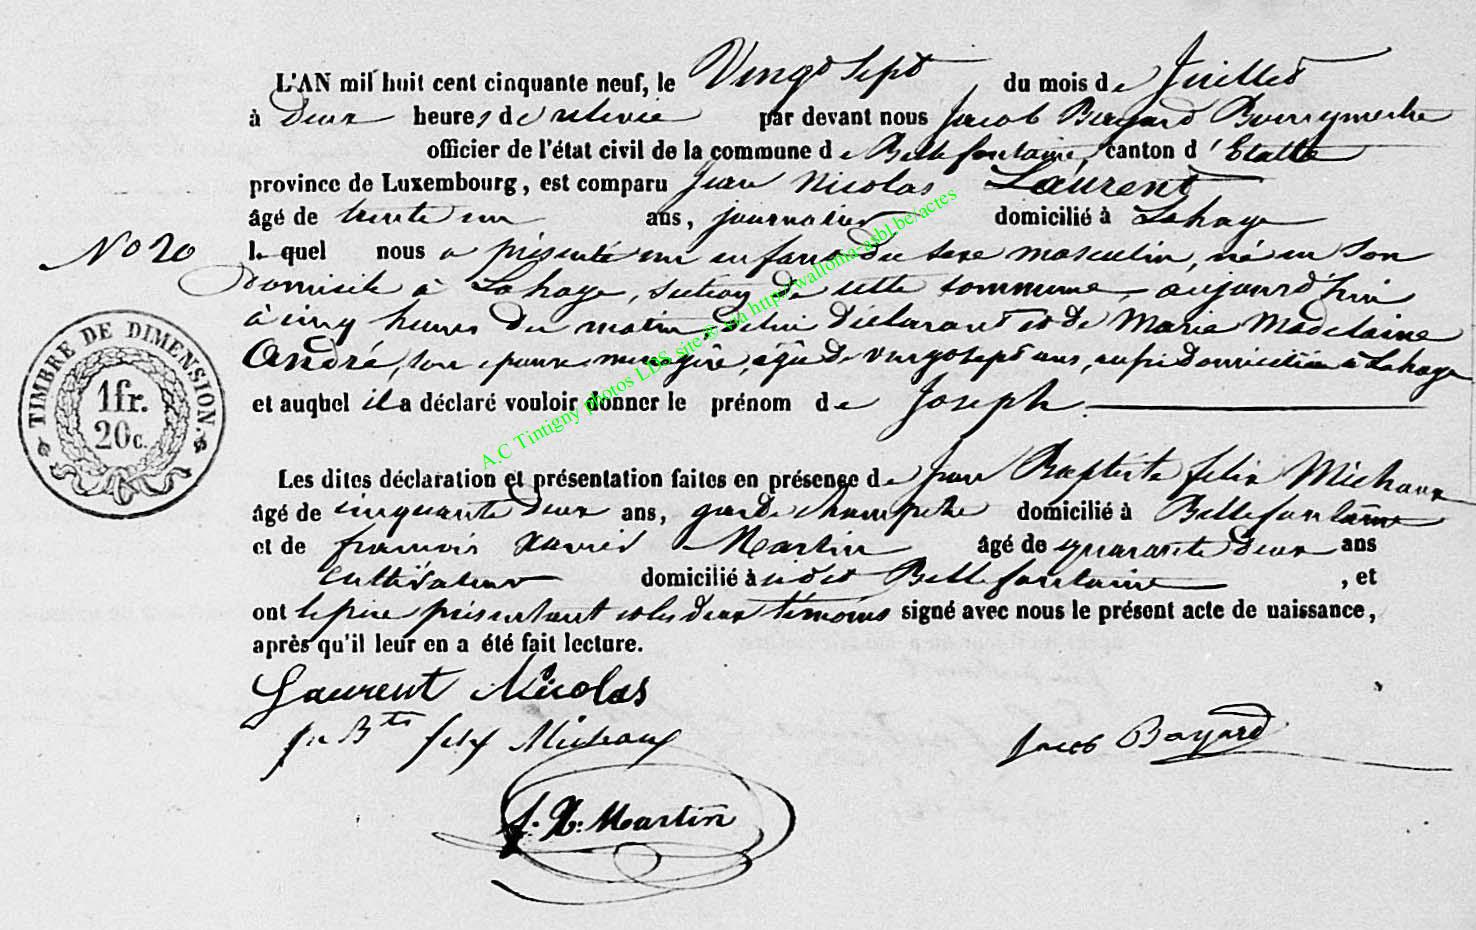 L'AN mil huit cent cinquante neuf, le Vingt sept du mois de Juillet
à Deux heures de relevée par devant nous Jacob Bayard Bourgmestre
officier de l'état civil de la commune de Bellefontaine, canton d'Etalle
province de Luxembourg, est comparu Jean Nicolas Laurent
âgé de trente un ans, journalier domicilié à Lahage
No 20
lequel nous a présenté un enfant du sexe masculin, né en son
domicile à Lahage, section de cette commune, aujourd'hui
à cinq heures du matin, de lui déclarant et de Marie Madelaine
André, son épouse ménagère, âgée de vingt sept ans, aussi domiciliée à Lahage
et auquel il a déclaré vouloir donner le prénom de Joseph
TIMBRE DE DIMENSION.
1fr.
20c.
Les dites déclaration et présentation faites en présence de Jean Baptiste felix Michaux
âgé de cinquante deux ans, garde champetre domicilié à Bellefontaine
et de francois Xavier Martin âgé de quarante deux ans
cultivateur domicilié à udit Bellefontaine, et
ont le père présentant et les deux témoins signé avec nous le présent acte de naissance,
après qu'il leur en a été fait lecture.
Laurent Nicolas
Jn Bte felix Michaux
Jacob Bayard
f. X. Martin
A.C Tintigny photos LDS site © via http://wallonia-asbl.be/actes